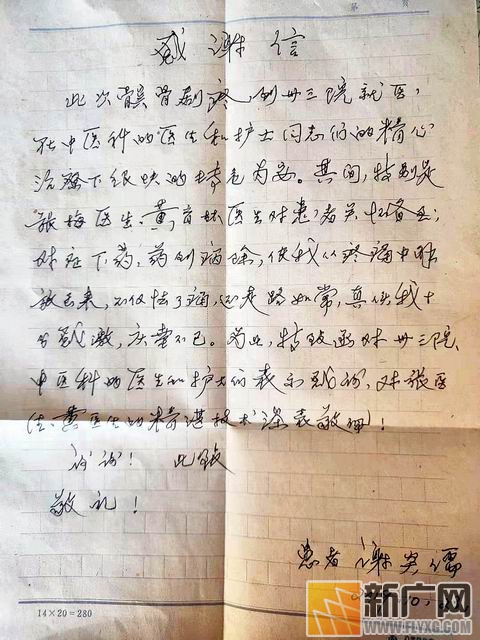 感谢信
此次髋骨剧疼，到卅三院就医，
在中医科的医生和护士同志们的精心
治疗下很快的转危为安。其间，特别是
张梅医生、黄育妹医生对患者关怀备至，
对症下药，药到病除，使我从疼痛中解
放出来，不仅祛了痛，还走路如常，真使我十
分感激，庆幸不已。为此，特致函对卅三院
中医科的医生和护士们表示感谢，对张医
生、黄医生的精湛技术深表敬佩！
谢谢！ 此致
敬礼！
患者 谢
14×20＝280
新广网
WWW.FLYXG.COM